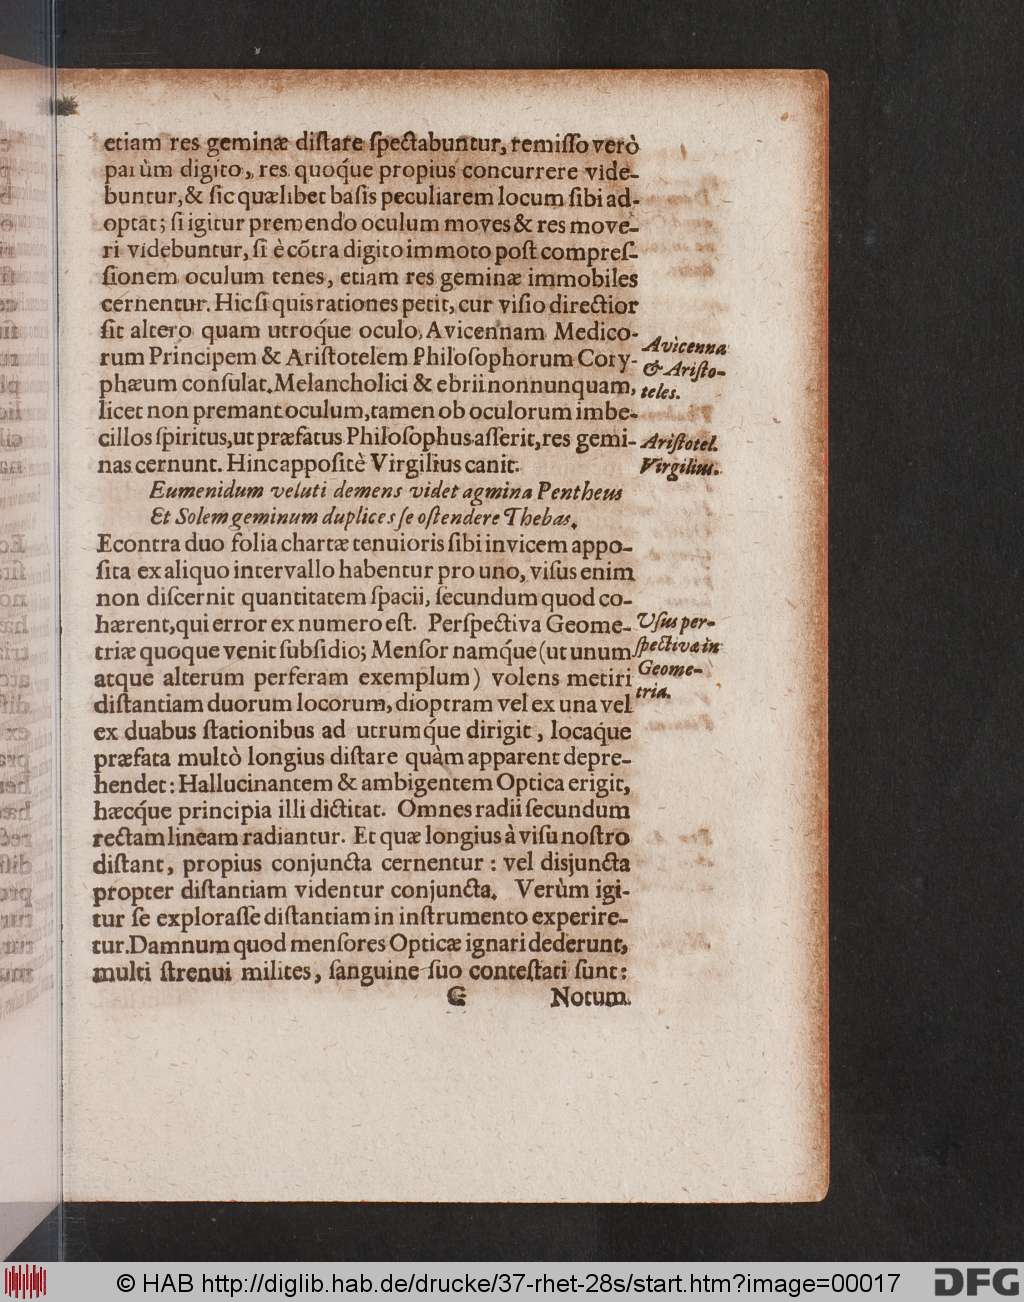 etiam res geminæ diſtare ſpectabuntur, remiſſo verò
parùm digito, res quoq́ue propius concurrere vide-
buntur, & ſic quælibet baſis peculiarem locum ſibi ad-
optat; ſi igitur premendo oculum moves & res move-
ri videbuntur, ſi è cõtra digito immoto poſt compreſ-
ſionem oculum tenes, etiam res geminæ immobiles
cernentur. Hic ſi quis rationes petit, cur viſio directior
ſit altero quam utroq́ue oculo, Avicennam Medico-
rum Principem & Ariſtotelem Philoſophorum Cory-
phæum conſulat. Melancholici & ebrii nonnunquam,
licet non premant oculum, tamen ob oculorum imbe-
cillos ſpiritus, ut præfatus Philoſophus aſſerit, res gemi-
nas cernunt. Hinc appoſitè Virgilius canit:
Eumenidum veluti demens videt agmina Pentheus
Et Solem geminum duplices ſe oſtendere Thebas,
Econtra duo folia chartæ tenuioris ſibi invicem appo-
ſita ex aliquo intervallo habentur pro uno, viſus enim
non diſcernit quantitatem ſpacii, ſecundum quod co-
hærent, qui error ex numero eſt. Perſpectiva Geome-
triæ quoque venit ſubſidio; Menſor namq́ue (ut unum
atque alterum perferam exemplum) volens metiri
diſtantiam duorum locorum, dioptram vel ex una vel
ex duabus ſtationibus ad utrumq́ue dirigit, locaq́ue
præfata multò longius diſtare quàm apparent depre-
hendet: Hallucinantem & ambigentem Optica erigit,
hæcq́ue principia illi dictitat. Omnes radii ſecundum
rectam lineam radiantur. Et quæ longius à viſu noſtro
diſtant, propius conjuncta cernentur: vel disjuncta
propter diſtantiam videntur conjuncta. Verùm igi-
tur ſe exploraſſe diſtantiam in inſtrumento experire-
tur. Damnum quod menſores Opticæ ignari dederunt,
multi ſtrenui milites, ſanguine ſuo conteſtati ſunt:
C Notum.
Avicenna
& Ariſto-
teles.
Ariſtotel.
Virgilius.
Uſus per-
ſpectiva in
Geome-
tria.
© HAB http://diglib.hab.de/drucke/37-rhet-28s/start.htm?image=00017
DFG